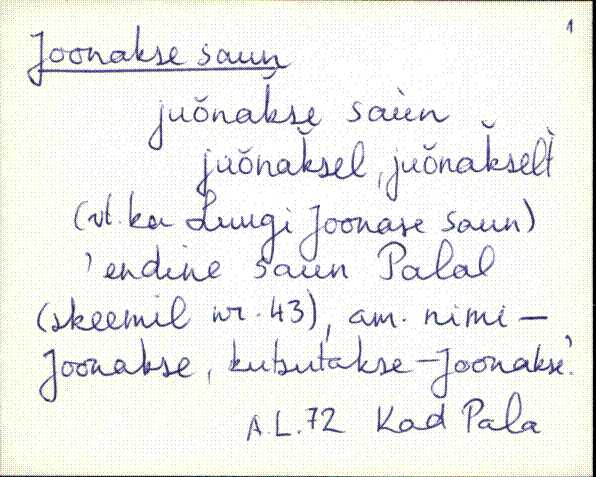 1
Joonakse saun
juŏnăkse saùn
juŏnăksel, juŏnăkselt̀
(vt. ka Luugi Joonase saun)
'endine saun Palal
(skeemil nr. 43), am. nimi –
Joonakse, kutsutakse – Joonakse'.
A.L. 72 Kad Pala